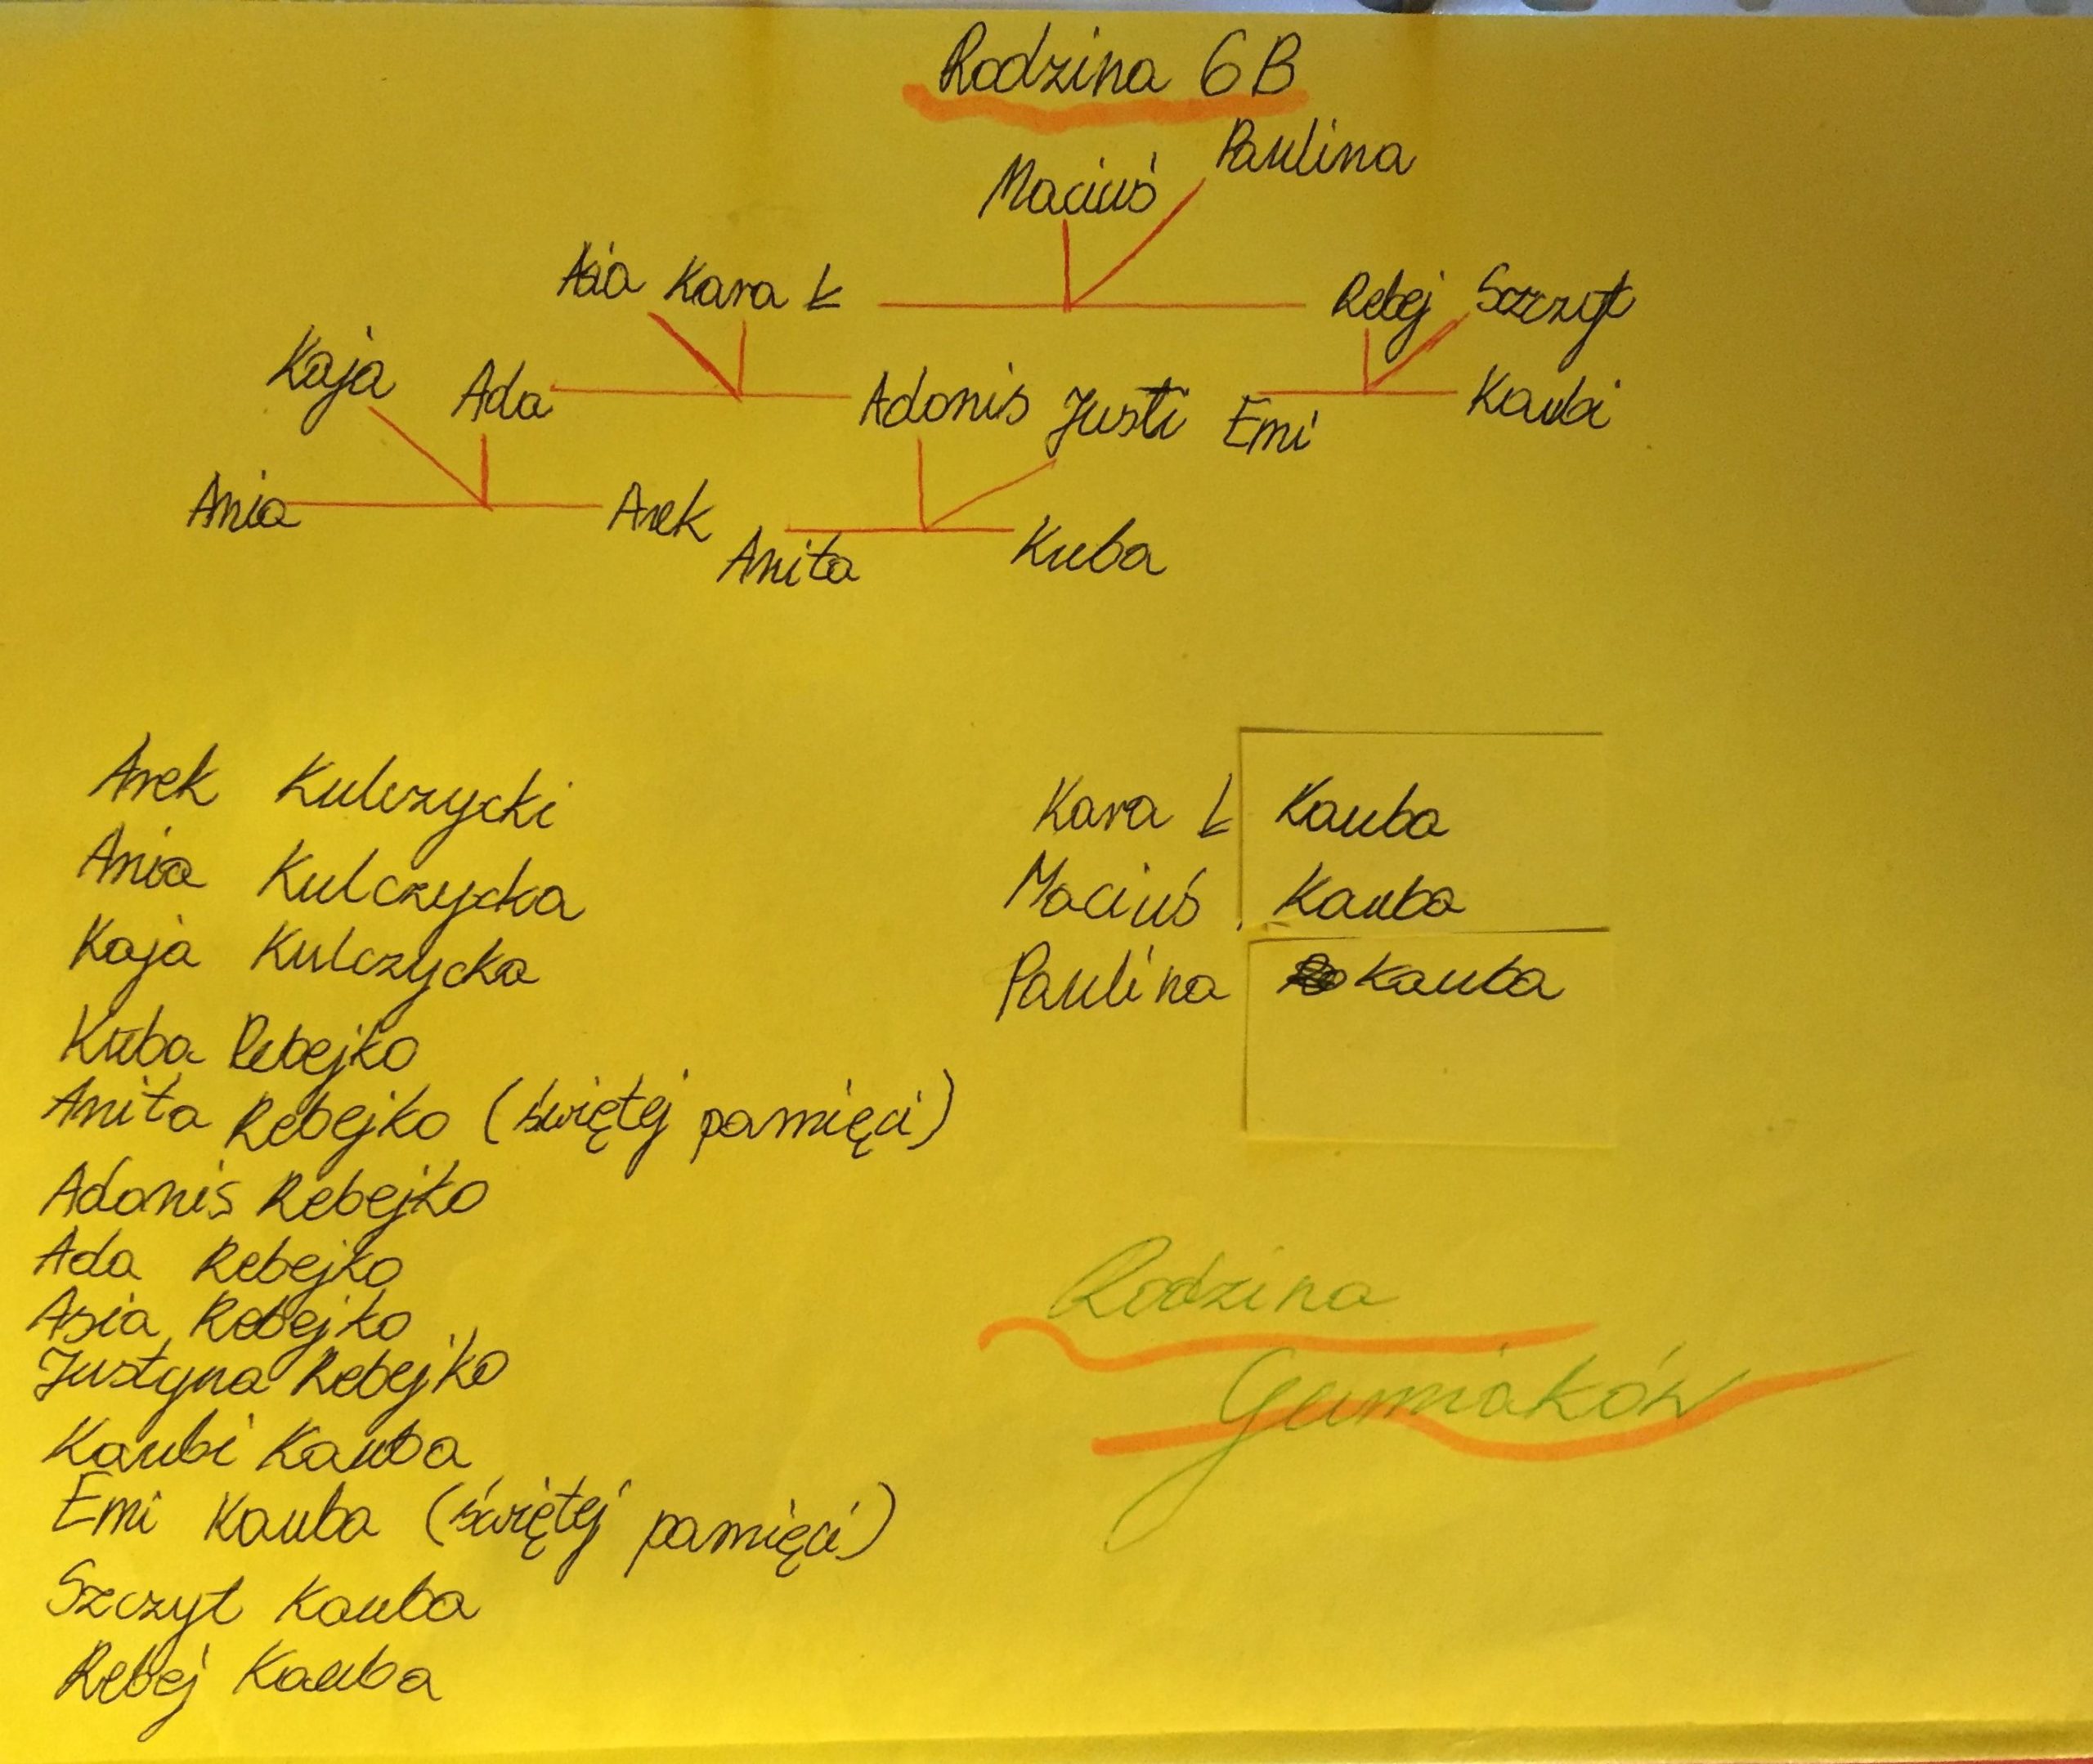 Rodzina 6B
Paulina
Maciuś
Asia Kara Ł
Rebej Szczyt
Kaja Ada
Adonis Justi Emi Kaubi
Ania Arek
Anita Kuba
Arek Kulczycki
Ania Kulczycka
Kaja Kulczycka
Kuba Rebejko
Anita Rebejko (świętej pamięci)
Adonis Rebejko
Ada Rebejko
Asia Rebejko
Justyna Rebejko
Kaubi Kauba
Emi Kauba (świętej pamięci)
Szczyt Kauba
Rebej Kauba
Kara Ł Kauba
Maciuś Kauba
Paulina Kauba
Rodzina
Gumiaków